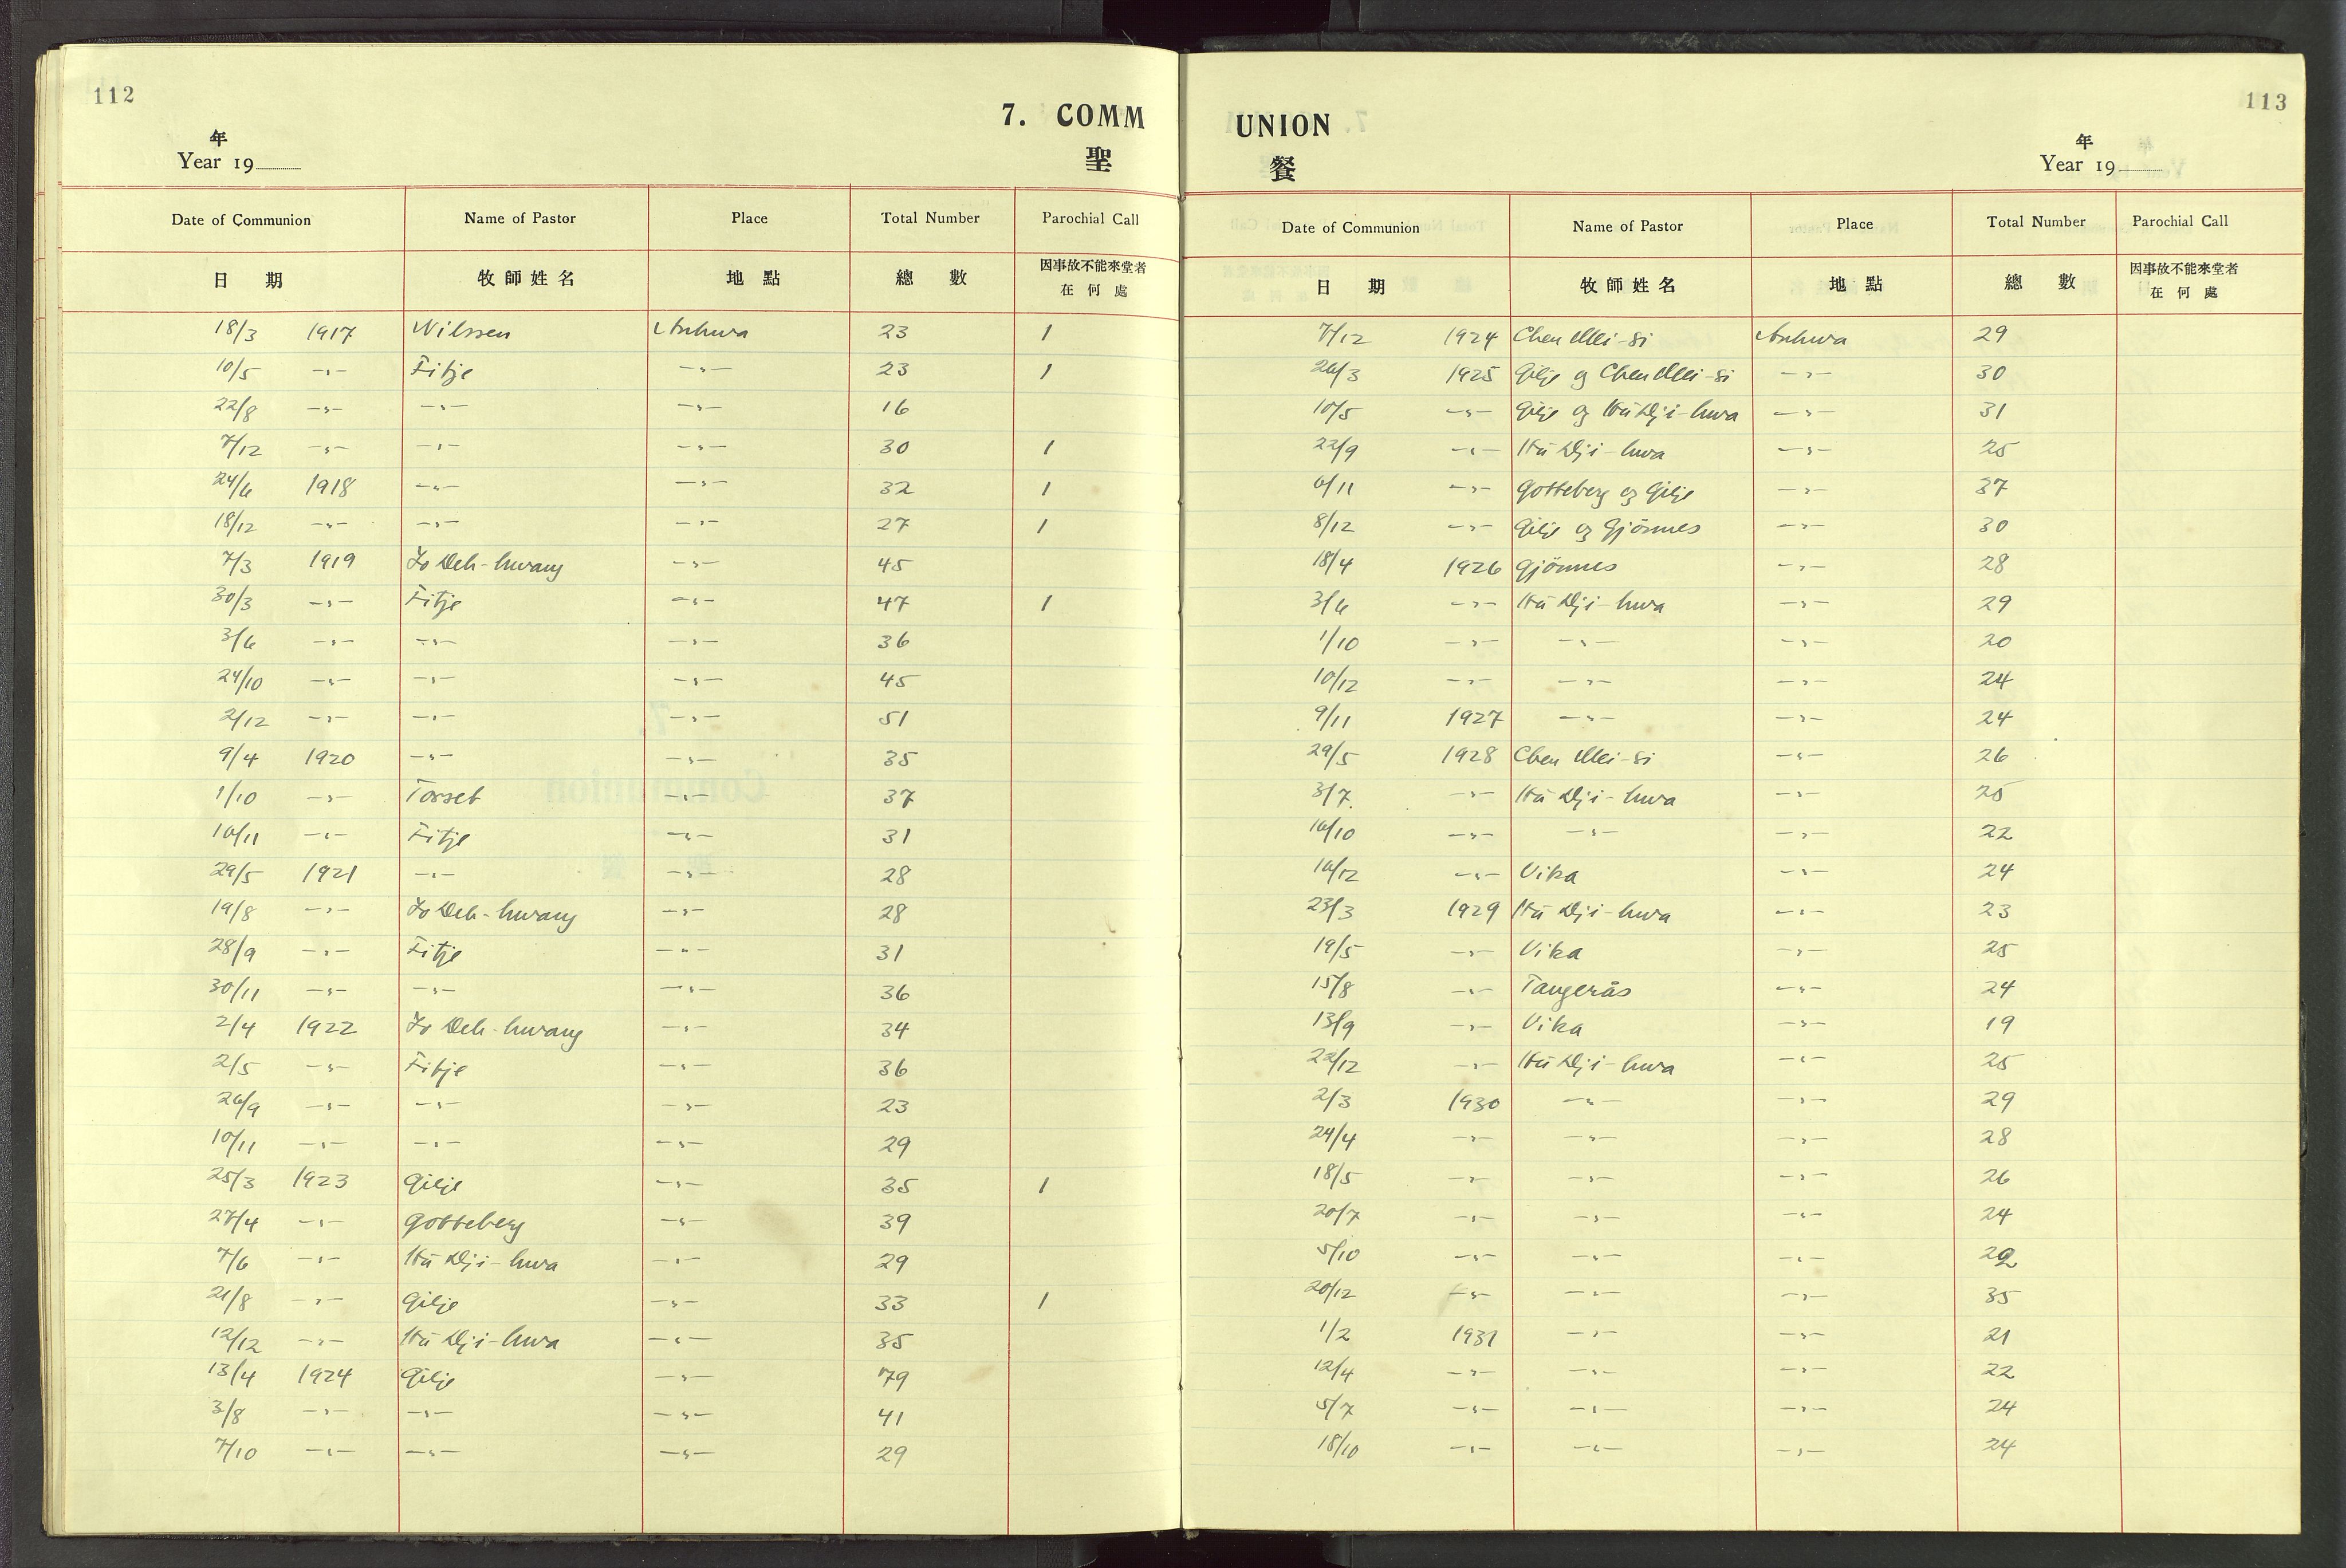 112
7. COMM
年
Year 19
聖
Date of Communion Name of Pastor Place Total Number Parochial Call
日 期 牧師姓名 地點 總數 因事故不能來堂者
在何處
18/3 1917 Nilssen Anhwa 23 1
10/5 -"- Fitje -"- 23 1
22/8 -"- -"- -"- 16
7/12 -"- -"- -"- 30 1
24/6 1918 -"- -"- 32 1
18/12 -"- -"- -"- 27 1
7/3 1919 Jo Deh-hwang -"- 45
30/3 -"- Fitje -"- 47 1
3/6 -"- -"- -"- 36
24/10 -"- -"- -"- 45
2/12 -"- -"- -"- 51
9/4 1920 -"- -"- 35
1/10 -"- Torset -"- 37
16/11 -"- Fitje -"- 31
29/5 1921 -"- -"- 28
19/8 -"- Jo Deh-hwang -"- 28
28/9 -"- Fitje -"- 31
30/11 -"- -"- -"- 36
2/4 1922 Jo Deh-hwang -"- 34
2/5 -"- Fitje -"- 36
26/9 -"- -"- -"- 23
10/11 -"- -"- -"- 29
25/3 1923 Gilje -"- 35 1
27/4 -"- Gotteberg -"- 39
7/6 -"- Hü Dji-hwa -"- 29
21/8 -"- Gilje -"- 33 1
12/12 -"- Hü Dji-hwa -"- 35
13/4 1924 Gilje -"- 79
3/8 -"- -"- -"- 41
7/10 -"- -"- -"- 29
113
UNION
年
Year 19
餐
Date of Communion Name of Pastor Place Total Number Parochial Call
日 期 牧師姓名 地點 總數 因事故不能來堂者
在何處
7/12 1924 Chen Mei-si Anhwa 29
26/3 1925 Gilje og Chen Mei-si -"- 30
10/5 -"- Gilje og Hü Dji-hwa -"- 31
22/9 -"- Hü Dji-hwa -"- 25
6/11 -"- Gotteberg og Gilje -"- 37
8/12 -"- Gilje og Gjönnes -"- 30
18/4 1926 Gjönnes -"- 28
3/6 -"- Hü Dji-hwa -"- 29
1/10 -"- -"- -"- 20
10/12 -"- -"- -"- 24
9/11 1927 -"- -"- 24
29/5 1928 Chen Mei-si -"- 26
3/7 -"- Hü Dji-hwa -"- 25
16/10 -"- -"- -"- 22
16/12 -"- Vika -"- 24
23/3 1929 Hü Dji-hwa -"- 23
19/5 -"- Vika -"- 25
15/8 -"- Tangerås -"- 24
13/9 -"- Vika -"- 19
22/12 -"- Hü Dji-hwa -"- 25
2/3 1930 -"- -"- 29
24/4 -"- -"- -"- 28
18/5 -"- -"- -"- 26
20/7 -"- -"- -"- 24
5/10 -"- -"- -"-
20/12 -"- -"- -"- 35
1/2 1931 -"- -"- 21
12/4 -"- -"- -"- 22
5/7 -"- -"- -"- 24
18/10 -"- -"- -"- 24